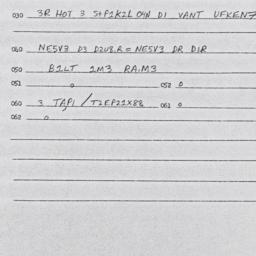 030 3R HOT 3 S+P1K2L O4N D1 VANT UFKEN7
060 NE5V3 D3 D2U8.R = NE5V3 DR D1R
050 B1LT 1M3 RA.M3
051 0 052 0
060 3 TAP1 / T2EP21X88 061 0
062 0